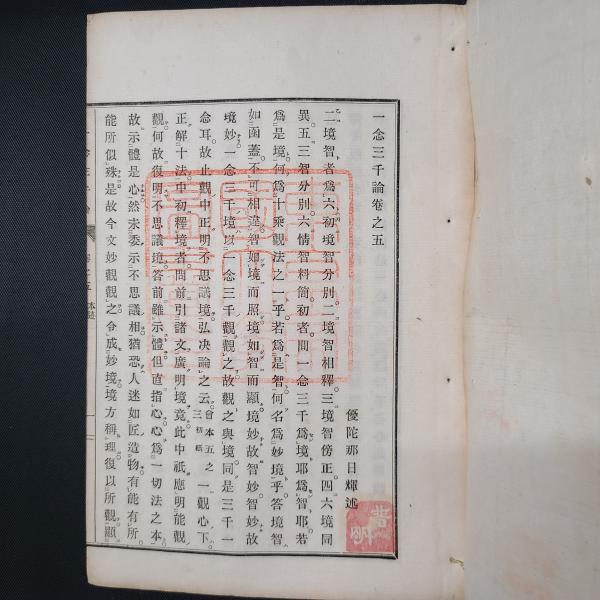 一念三千論卷之五
優陀那日輝述
二境智者爲六初境智分別。二境智相釋。三境智傍正。四六境同
異。五三智分別。六情智料簡。初者。問一念三千爲境耶爲智耶。若
爲是境。何爲十乘觀法之一乎。若爲是智。何名爲妙境乎。答境智
如函蓋不可相違。智如境而照境。如智而顯。境妙故智妙。智妙故
境妙。一念三千境以一念三千觀觀之。故觀之與境同是三千一
念耳。故止觀中正明不思議境。弘決論之云 會本五之三初紙 觀心下
正解十法中。初釋境者。問前引諸文廣明境竟。此中祇應明能觀
觀。何故復明不思議境。答前雖示體。但直指心。心爲一切法之本。
故示體是心。然未委示不思議相。猶恐人迷。如匠造物有能有所。
能所似殊。是故今文妙觀觀之令成妙境。境方稱理。復以所觀顯
本誌
普明